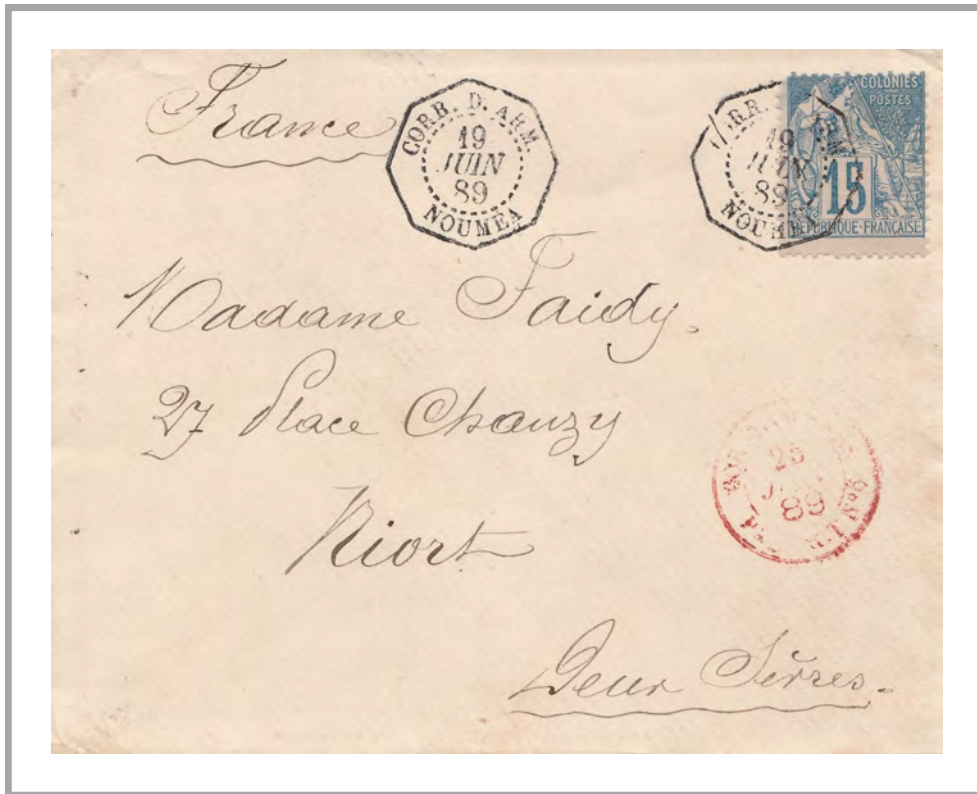 France
CORR. D. ARM.
19
JUIN
89
NOUMEA
19
JUIN
89
NOUMEA
COLONIES
POSTES
15
REPUBLIQUE·FRANÇAISE
Madame Faidy.
27 Place Chanzy
Niort
Deux Sèvres.
25
89